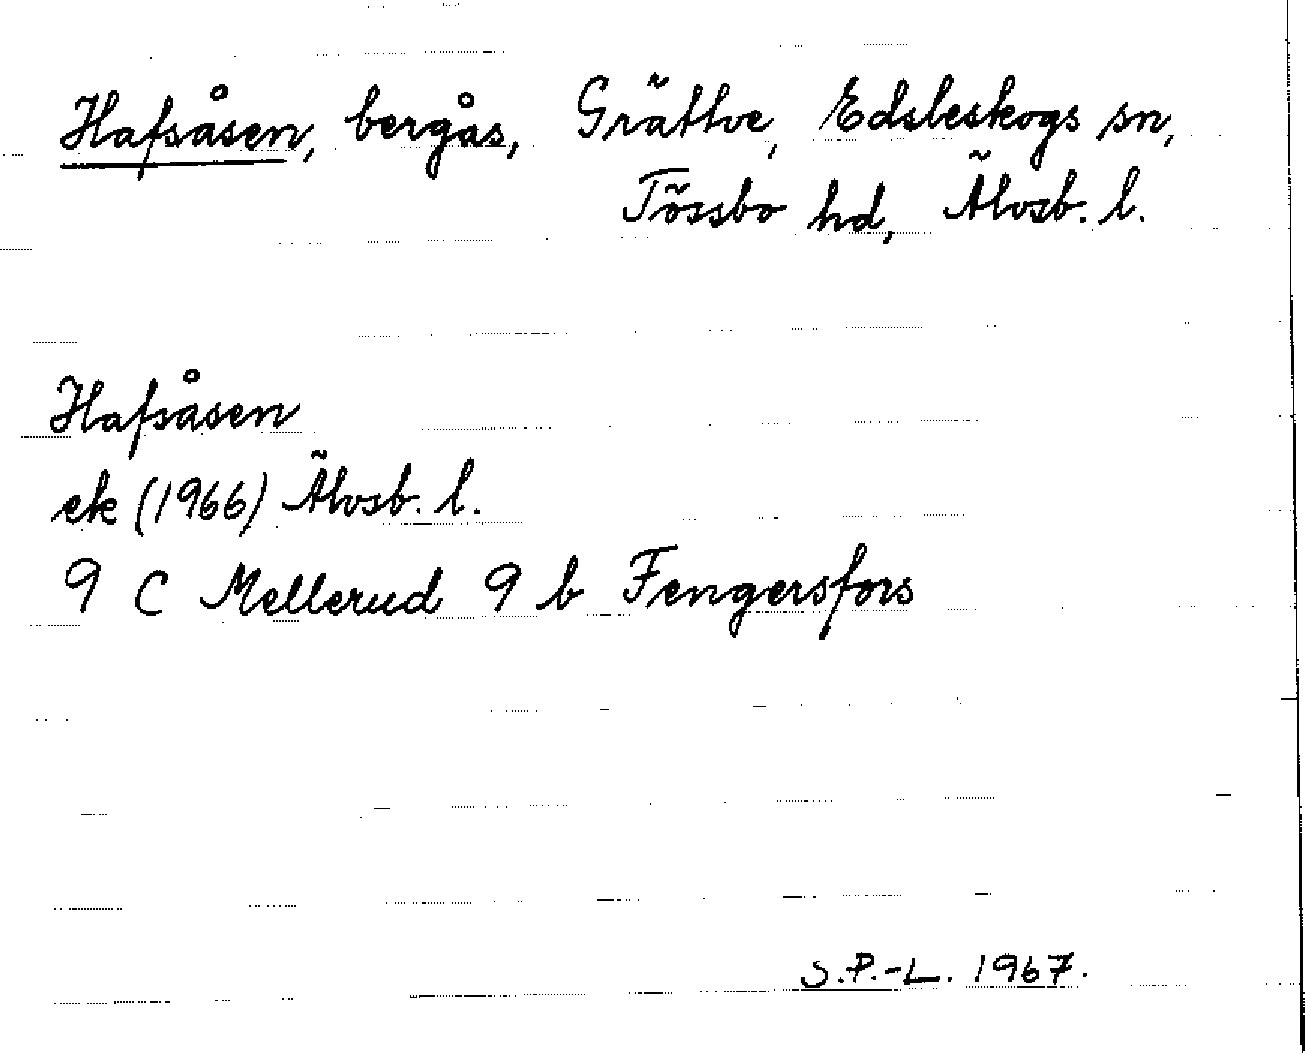 Hafsåsen, bergås, Grättve, Edsleskogs sn,
Tössbo hd, Älvsb. l.
Hafsåsen
ek (1966) Älvsb. l.
9 C Mellerud 9 b Fengersfors
S.P.-L. 1967.